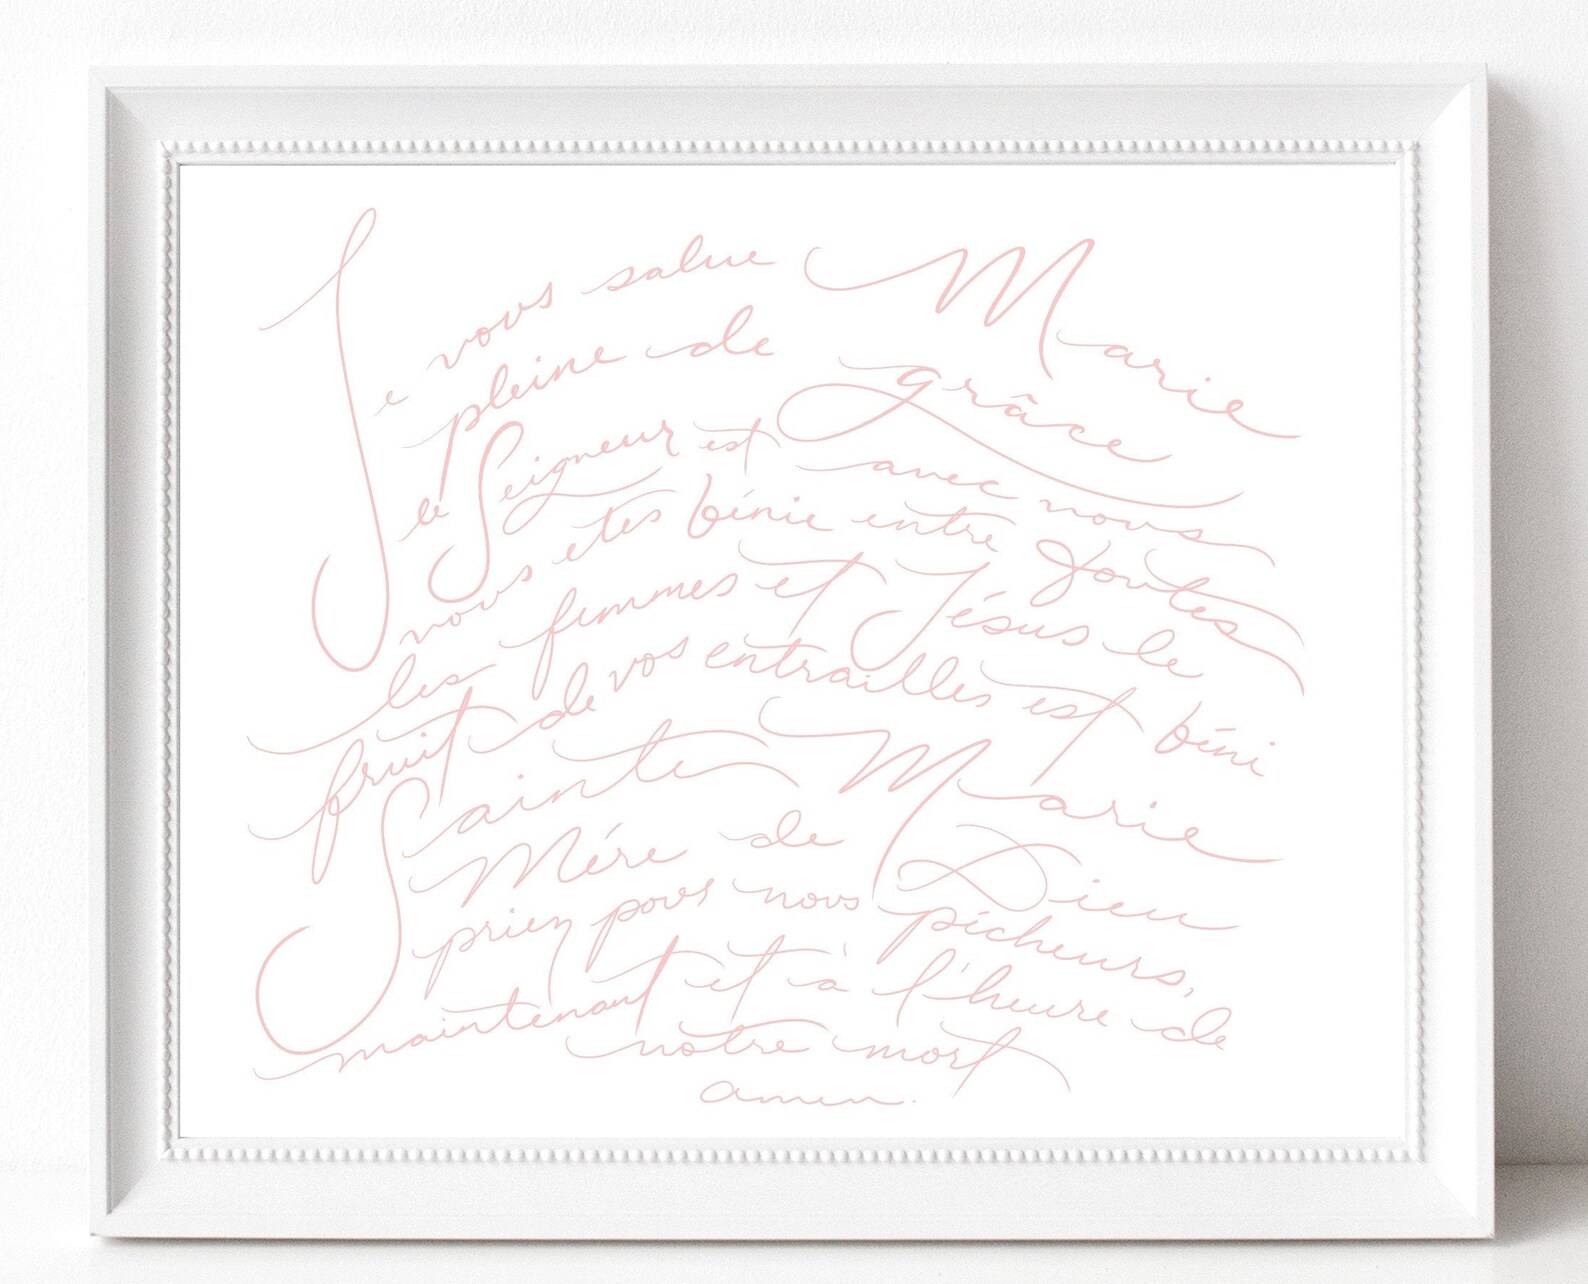 Je vous salue Marie
pleine de grâce
le Seigneur est avec nous
vous etes bénie entre toutes
les femmes et Jésus le
fruit de vos entrailles est béni
Sainte Marie
Mére de Dieu
priez pour nous pécheurs,
maintenant et à l'heure de
notre mort
amen.